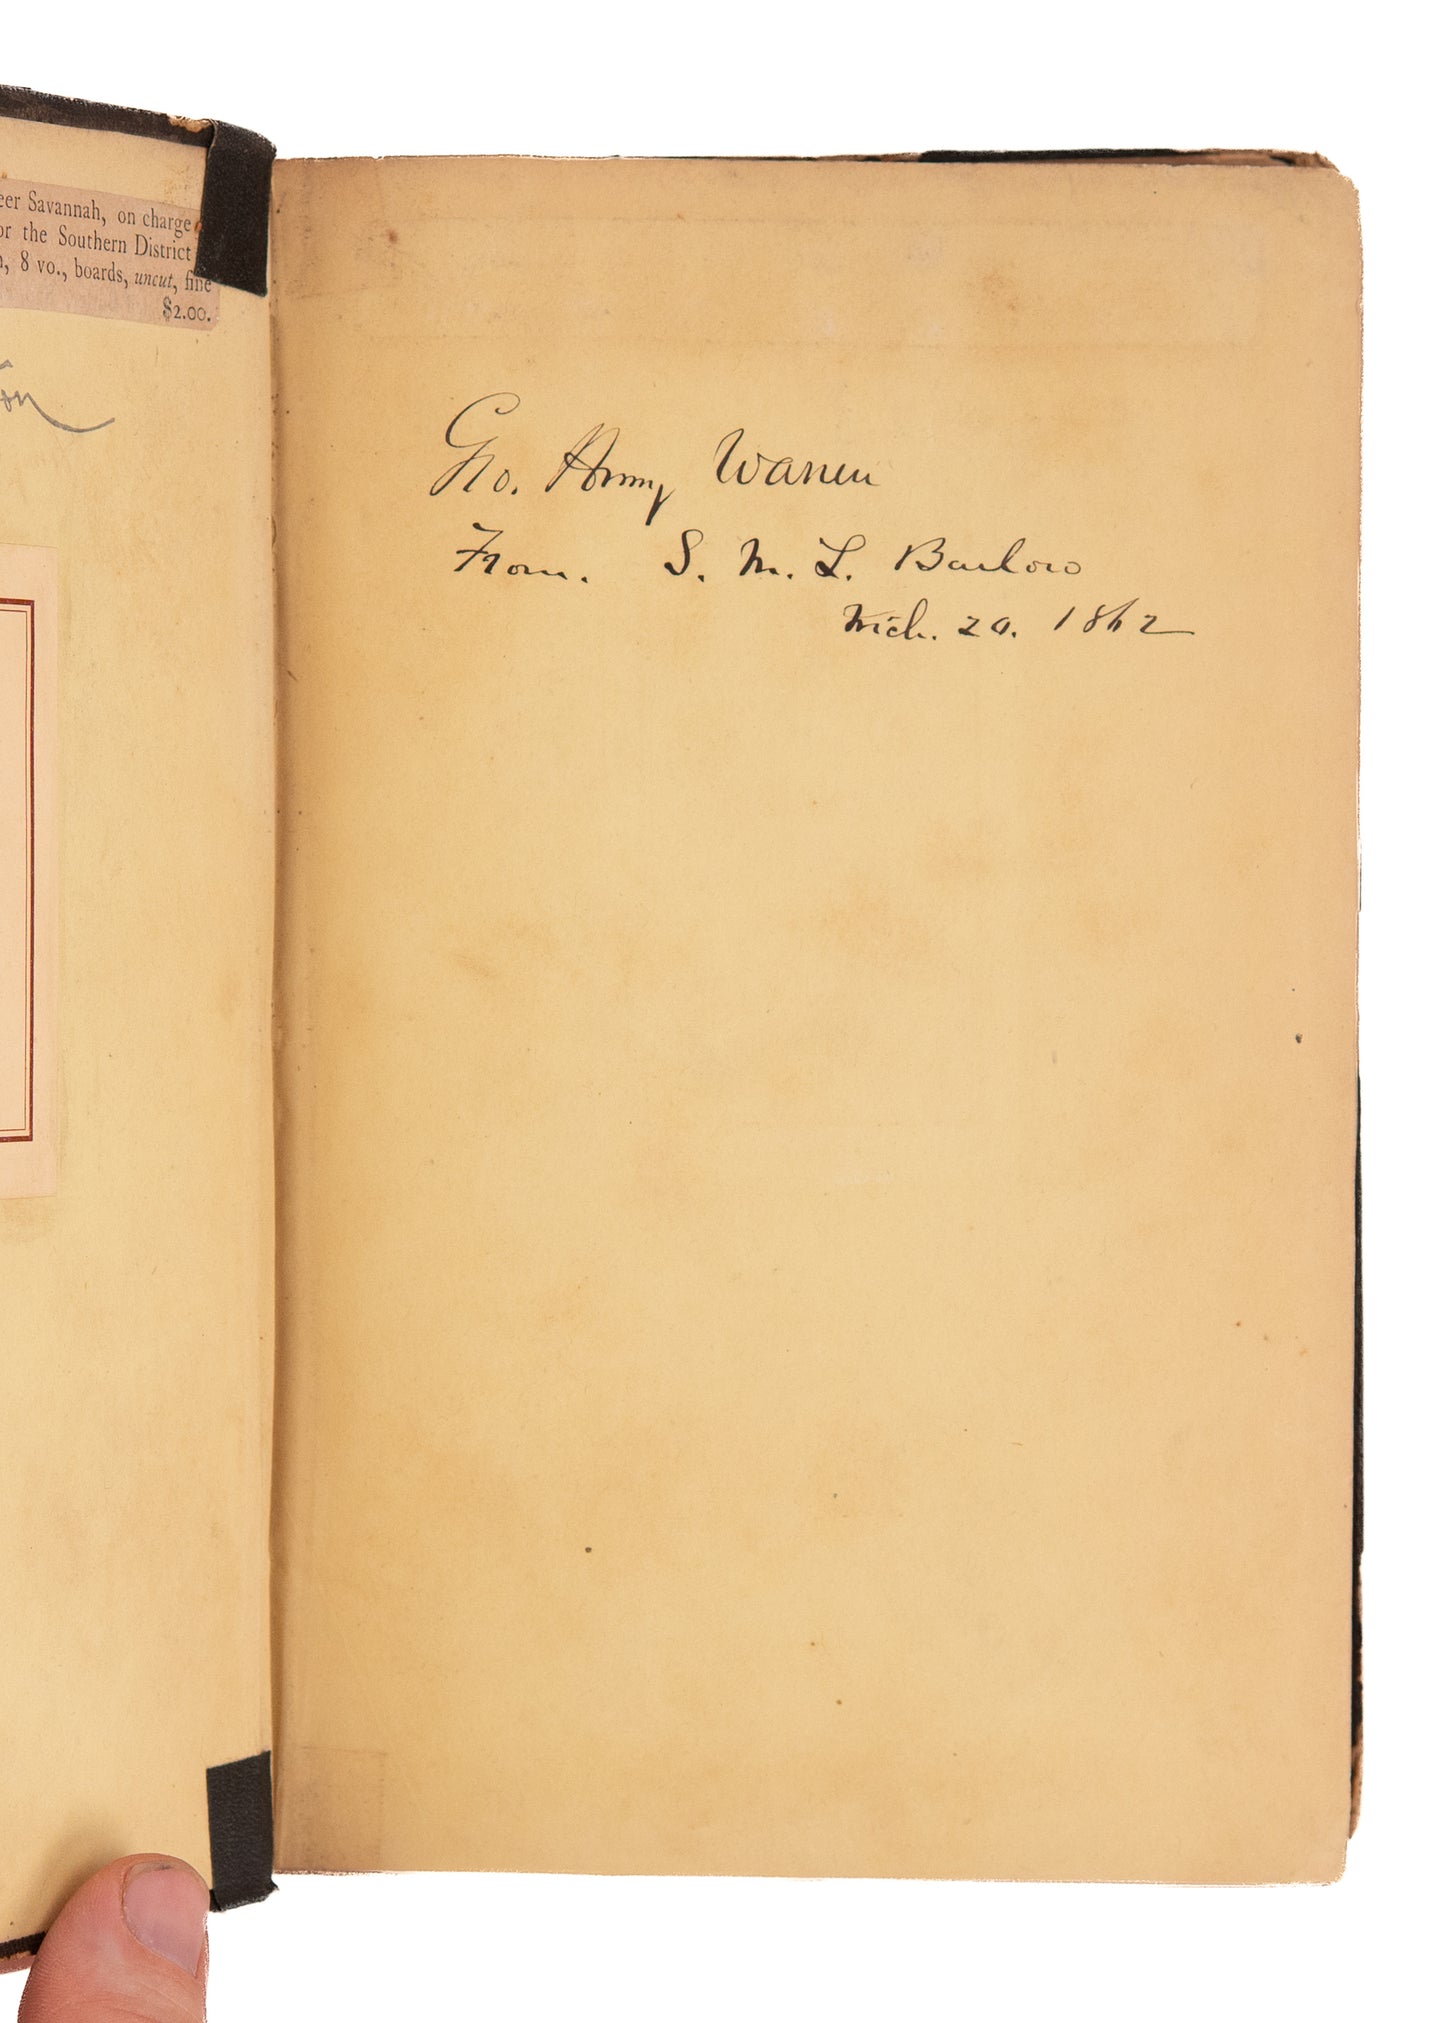 eer Savannah, on charge
or the Southern District
n, 8 vo., boards, uncut, fine
$2.00.
on
Geo. Henry Warren
From. S. M. L. Barlow
Mch. 20. 1862